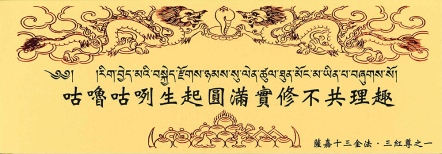 ༄༅། །རིག་བྱེད་མའི་བསྐྱེད་རྫོགས་ཉམས་སུ་ལེན་ཚུལ་ཐུན་མོང་མ་ཡིན་པ་བཞུགས་སོ།
咕嚕咕咧生起圓滿實修不共理趣
薩嘉十三金法・三紅尊之一